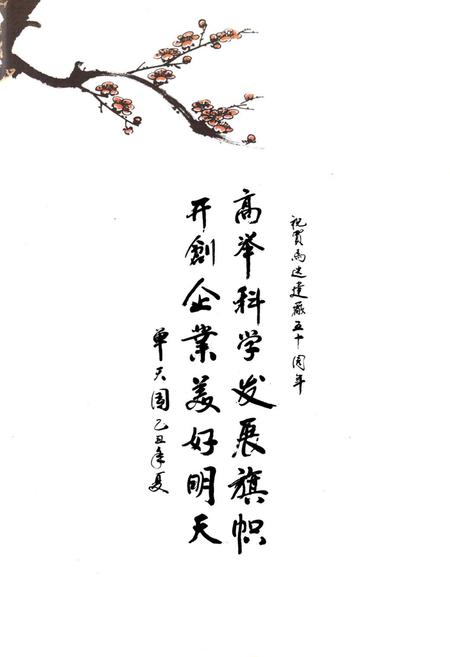 祝贺马达建厂五十周年
高举科学发展旗帜
开創企業美好明天
单天国乙丑年夏